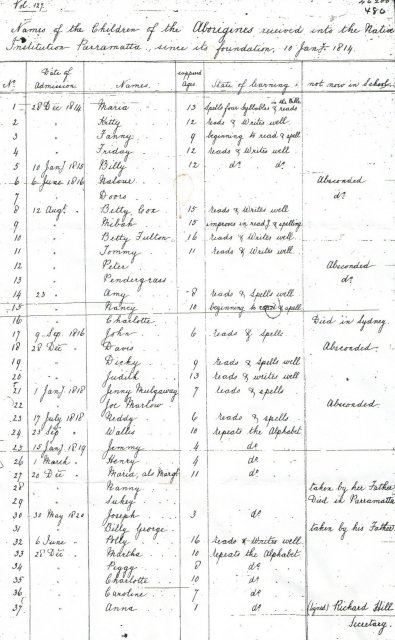 Vol. 127.
486
Names of the Children of the Aborigines received into the Native
Institution Parramatta, since its foundation, 10 Jany. 1814.
No. Date of Admission Names. supposed Ages State of learning. not now in School
1 28 Dec 1814 Maria 13 Spells four Syllables & reads in the Bible
2 " Kitty 12 reads & Writes well
3 " Fanny 9 beginning to read & spell
4 " Friday 12 reads & Writes well
5 10 Jany 1815 Billy 12 do. do.
6 6 June 1816 Nalour Absconded
7 " Doors do.
8 12 Augt. " Betty Cox 15 reads & Writes well
9 " Milbah 15 improves in readg. & spelling
10 " Betty Fulton 16 reads & Writes well
11 " Tommy 11 reads & Writes well
12 " Peter Absconded
13 " Pendergrass do.
14 23 " Amy 8 reads & Spells well
15 " Nancy 10 beginning to repeat & spell
16 " Charlotte Died in Sydney
17 9 Sep. 1816 John 6 reads & Spells
18 28 Dec " Davis Absconded
19 " Dicky 9 reads & Spells well
20 " Judith 13 reads & writes well
21 1 Jany 1818 Jenny Mulgaway 7 reads & spells
22 " Joe Marlow Absconded
23 17 July 1818 Neddy 6 reads & spells
24 23 Sep " Wallis 10 repeats the Alphabet
25 15 Jany 1819 Jemmy 4 do.
26 1 March " Henry 4 do.
27 20 Dec " Maria, als Margt. 11 do.
28 " Nanny taken by her Father
29 " Sukey Died in Parramatta
30 30 May 1820 Joseph 3 do.
31 " Billy George taken by his Father
32 6 June " Polly 16 reads & Writes well
33 28 Dec " Martha 10 repeats the Alphabet
34 " Peggy 8 do.
35 " Charlotte 10 do.
36 " Caroline 7 do.
37 " Anna 1 do. (signed) Richard Hill
Secretary.